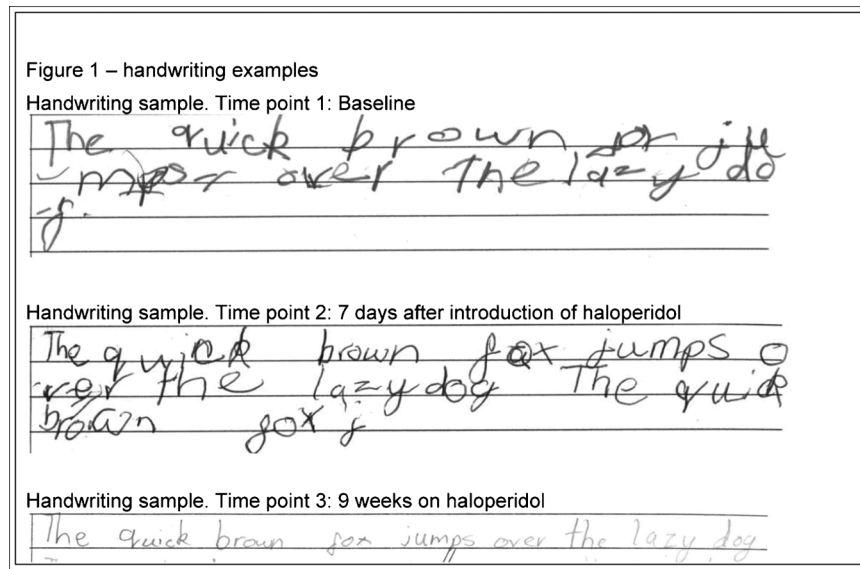 Figure 1 – handwriting examples
Handwriting sample. Time point 1: Baseline
The quick brown ju
over The lazy do
g.
Handwriting sample. Time point 2: 7 days after introduction of haloperidol
The quick brown fox jumps o
ver the lazy dog The quick
brown fox j
Handwriting sample. Time point 3: 9 weeks on haloperidol
The quick brown fox jumps over the lazy dog